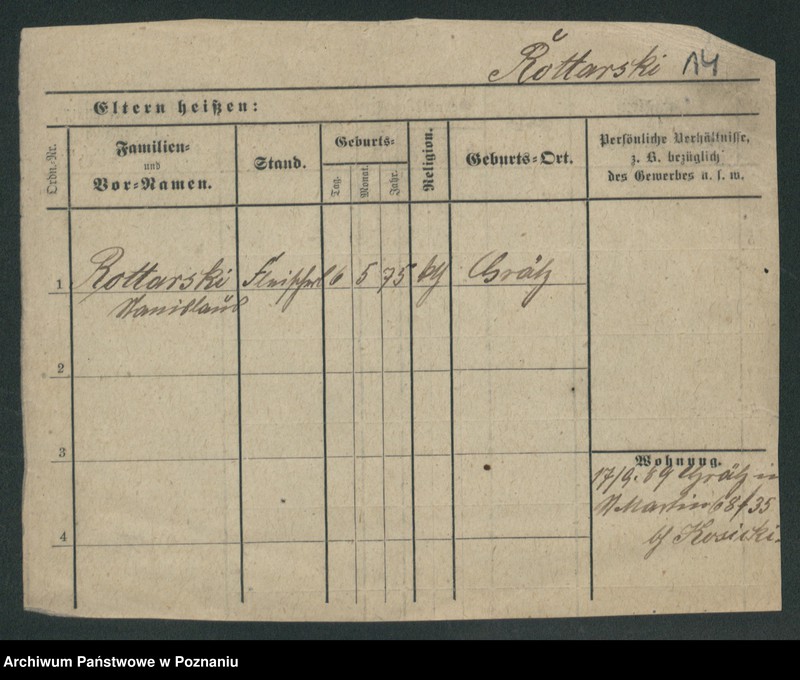 Rottarski 14
Eltern heißen:
Ordn.-Nr.
Familien-
und
Vor-Namen.
Stand.
Geburts-
Tag.
Monat.
Jahr.
Religion.
Geburts-Ort.
Persönliche Verhältnisse,
z. B. bezüglich
des Gewerbes u. s. w.
1 Rottarski 6 5 75 Grätz
Stanislaus
2
3
4
Wohnung.
17/9. 89 Grätz in
St Martin 68/35
b/ Kosicki.
Archiwum Państwowe w Poznaniu